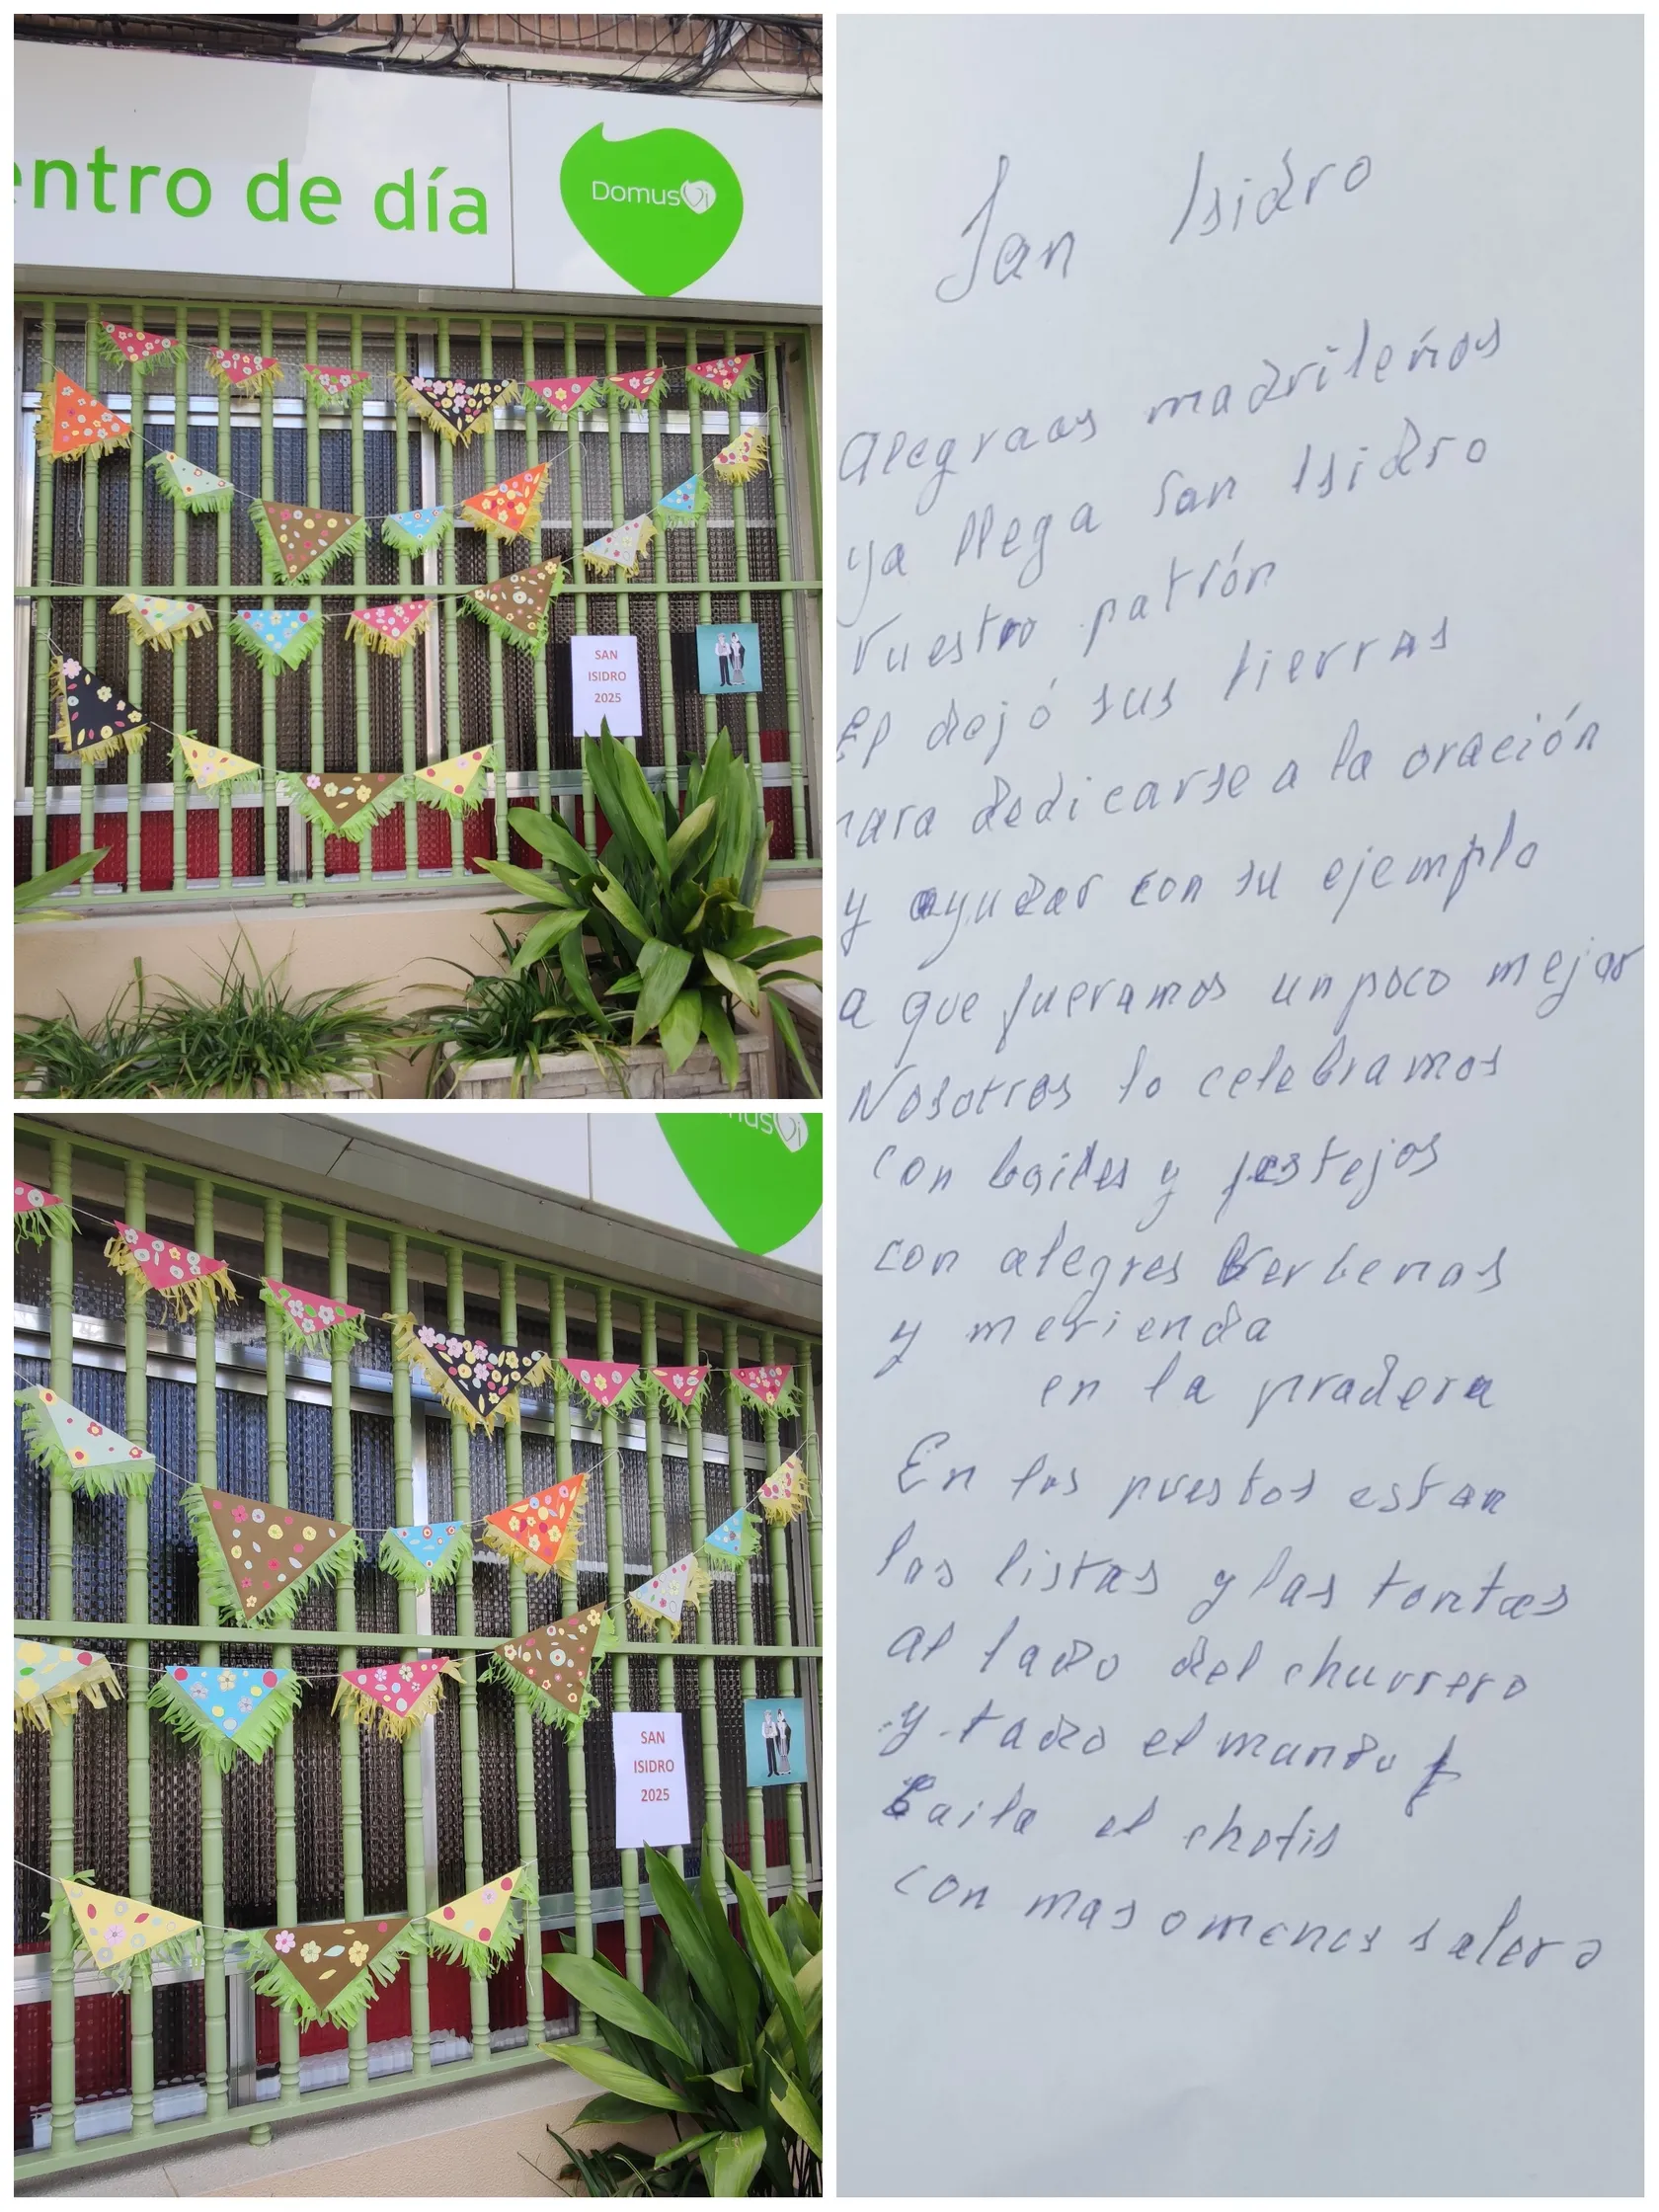 entro de día
DomusVi
SAN
ISIDRO
2025
musVi
SAN
ISIDRO
2025
San Isidro
Alegraos madrileños
ya llega San Isidro
Vuestro patrón
El dejó sus tierras
para dedicarse a la oración
y ayudar con su ejemplo
a que fueramos un poco mejor
Nosotros lo celebramos
con bailes y festejos
con alegres verbenas
y merienda
en la pradera
En los puestos estan
las listas y las tontas
al lado del churrero
y todo el mundo
baila el chotis
con mas o menos salero